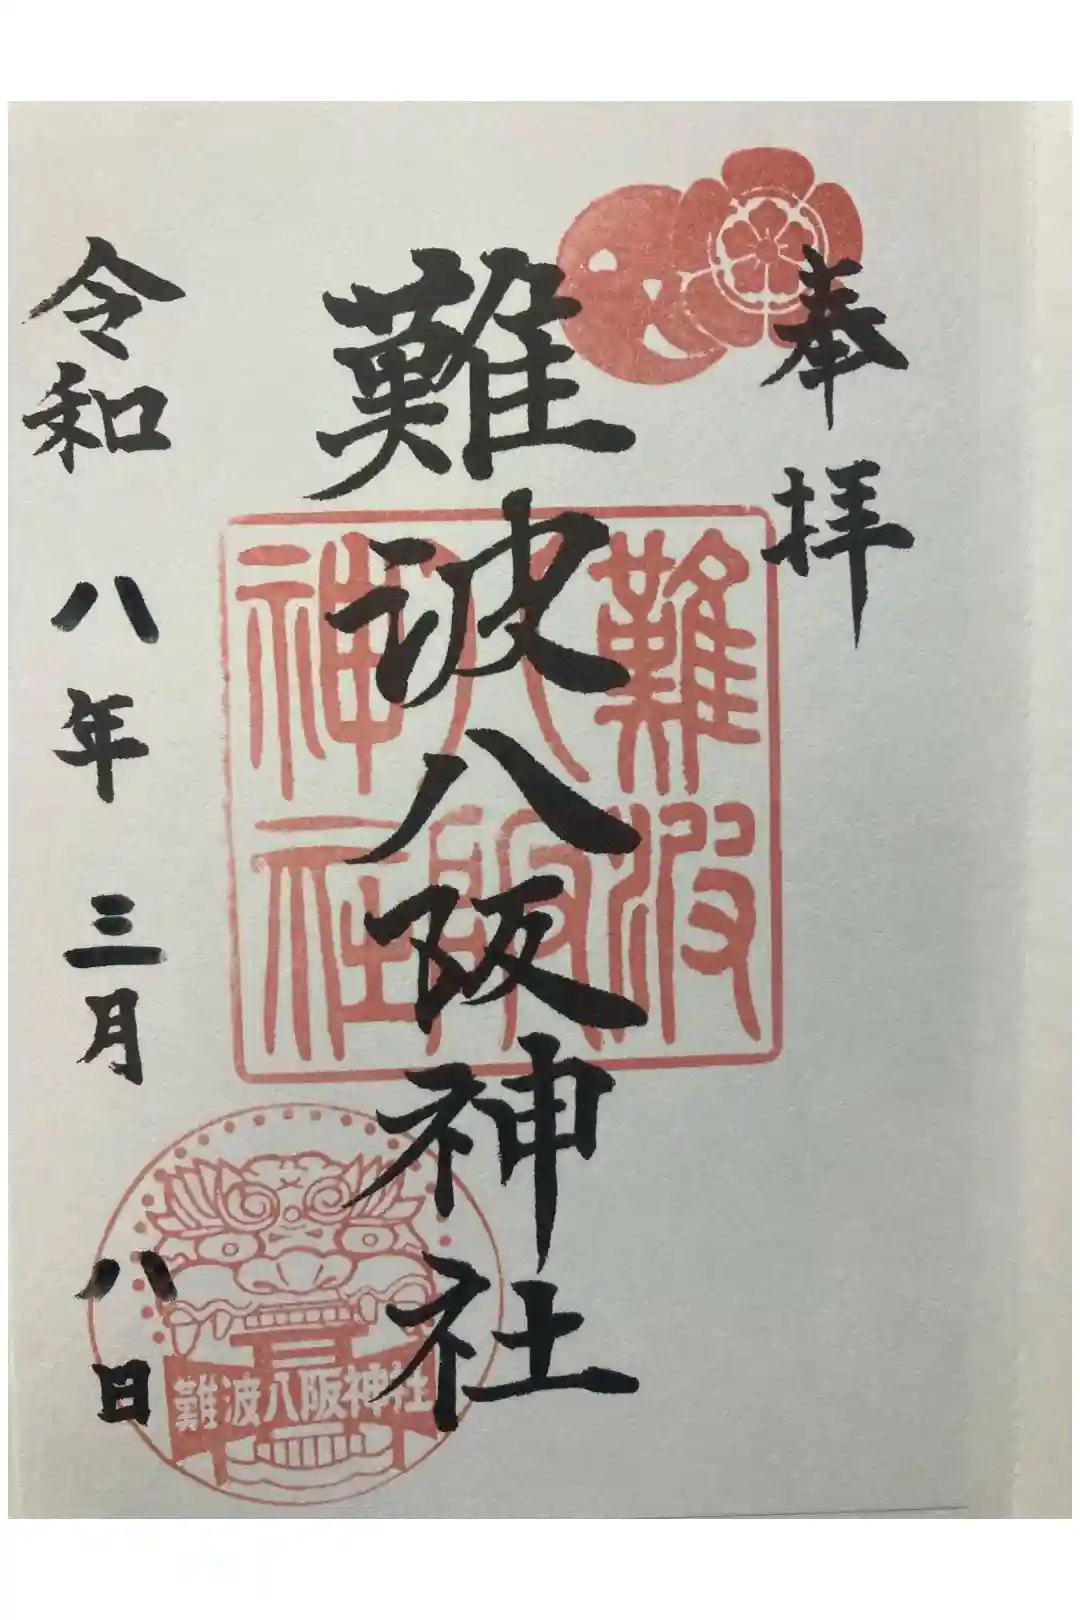 奉拝
難波八阪神社
令和八年三月八日
難波八阪神社
難波八阪神社